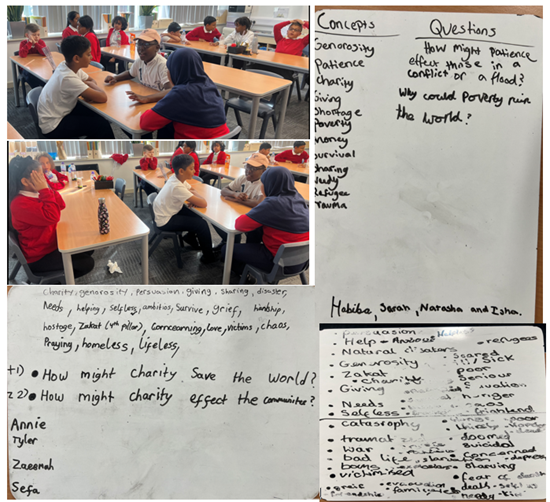 Concepts
Generosity
Patience
Charity
Giving
Shortage
Poverty
Money
Survival
Sharing
Needy
Refugee
Trauma
Questions
How might patience
effect those in a
conflict or a flood?
Why could Poverty ruin
the world?
Habiba, Serah, Natasha and Isha.
Charity, generosity, Persuasion, giving, sharing, disaster,
Needs, helping, selfless, ambitios, survive, grief, hardship,
hostage, Zakat (4th pillar), Concearning, love, victims, chaos,
Praying, homeless, lifeless,
1) • How might Charity Save the World?
2) • How might charity effect the communites?
Annie
Tyler
Zaeemah
Sefa
Persuasion
Help - Anxious
refugees
Natural disasters
Scared
Generosity
ill/sick
Zakat
poor
Charity
Serious
Giving
Needs
hunger
Selfless
frightend
Catasrophy
thirsty
traumat
doomed
War
suicidal
bad life
concerned
starving
victimized
fear
grief
families
death
needy